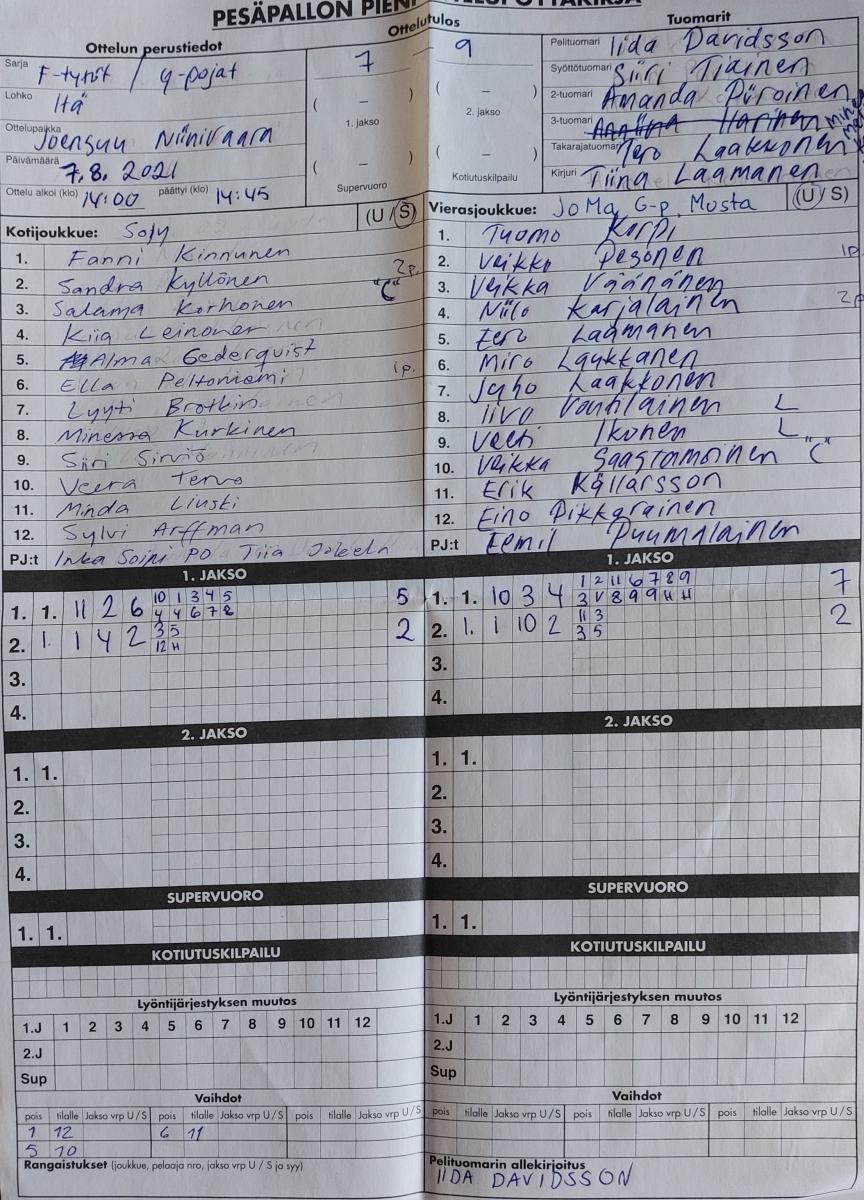 PESÄPALLON PIEN
Ottelun perustiedot
Sarja F-tytöt / G-pojat
Lohko Itä
Ottelupaikka Joensuu Niinivaara
Päivämäärä 7.8.2021
Ottelu alkoi (klo) 14:00 päättyi (klo) 14:45
Ottelutulos
7 – 9
( – )
1. jakso
( – )
Supervuoro
( – )
2. jakso
( – )
Kotiutuskilpailu
Tuomarit
Pelituomari Iida Davidsson
Syöttötuomari Siiri Tiainen
2-tuomari Amanda Piiroinen
3-tuomari
Takarajatuomari Tero Laakkonen
Kirjuri Tiina Laamanen
Kotijoukkue: SoJy (U / S)
1. Fanni Kinnunen
2. Sandra Kyllönen 2p.
3. Salama Korhonen "C"
4. Kiia Leinonen
5. Alma Cederquist
6. Ella Peltoniemi 1p.
7. Lyyti Brotkin
8. Minessa Kurkinen
9. Siiri Sirviö
10. Veera Tervo
11. Minda
12. Sylvi Arffman
PJ:t Inka Soini PO Tiia
Vierasjoukkue: JoMa G-p Musta (U / S)
1. Tuomo Korpi
2. Veikko Pesonen 1p.
3. Veikka Väänänen
4. Niilo Karjalainen 2p
5. Eero Laamanen
6. Miro Laukkanen
7. Juho Laakkonen
8. Iivo Voutilainen L
9. Veeti Ikonen L
10. Veikka Saastamoinen "C"
11. Erik Källarsson
12. Eino Pikkarainen
PJ:t Eemil Puumalainen
1. JAKSO
1. 1. 11 2 6 10 1 3 4 5 5
4 4 6 7 8
2. 1. 1 4 2 3 5 2
12 H
3.
4.
2. JAKSO
1. 1.
2.
3.
4.
SUPERVUORO
1. 1.
KOTIUTUSKILPAILU
Lyöntijärjestyksen muutos
1.J 1 2 3 4 5 6 7 8 9 10 11 12
2.J
Sup
Vaihdot
pois tilalle Jakso vrp U / S pois tilalle Jakso vrp U / S pois tilalle Jakso vrp U / S
1 12 6 11
5 10
Rangaistukset (joukkue, pelaaja nro, jakso vrp U / S ja syy)
1. JAKSO
1. 1. 10 3 4 1 2 11 6 7 8 9 7
3 V 8 9 9 H H
2. 1. 1 10 2 11 3 2
3 5
3.
4.
2. JAKSO
1. 1.
2.
3.
4.
SUPERVUORO
1. 1.
KOTIUTUSKILPAILU
Lyöntijärjestyksen muutos
1.J 1 2 3 4 5 6 7 8 9 10 11 12
2.J
Sup
Vaihdot
pois tilalle Jakso vrp U / S pois tilalle Jakso vrp U / S pois tilalle Jakso vrp U / S
Pelituomarin allekirjoitus
IIDA DAVIDSSON